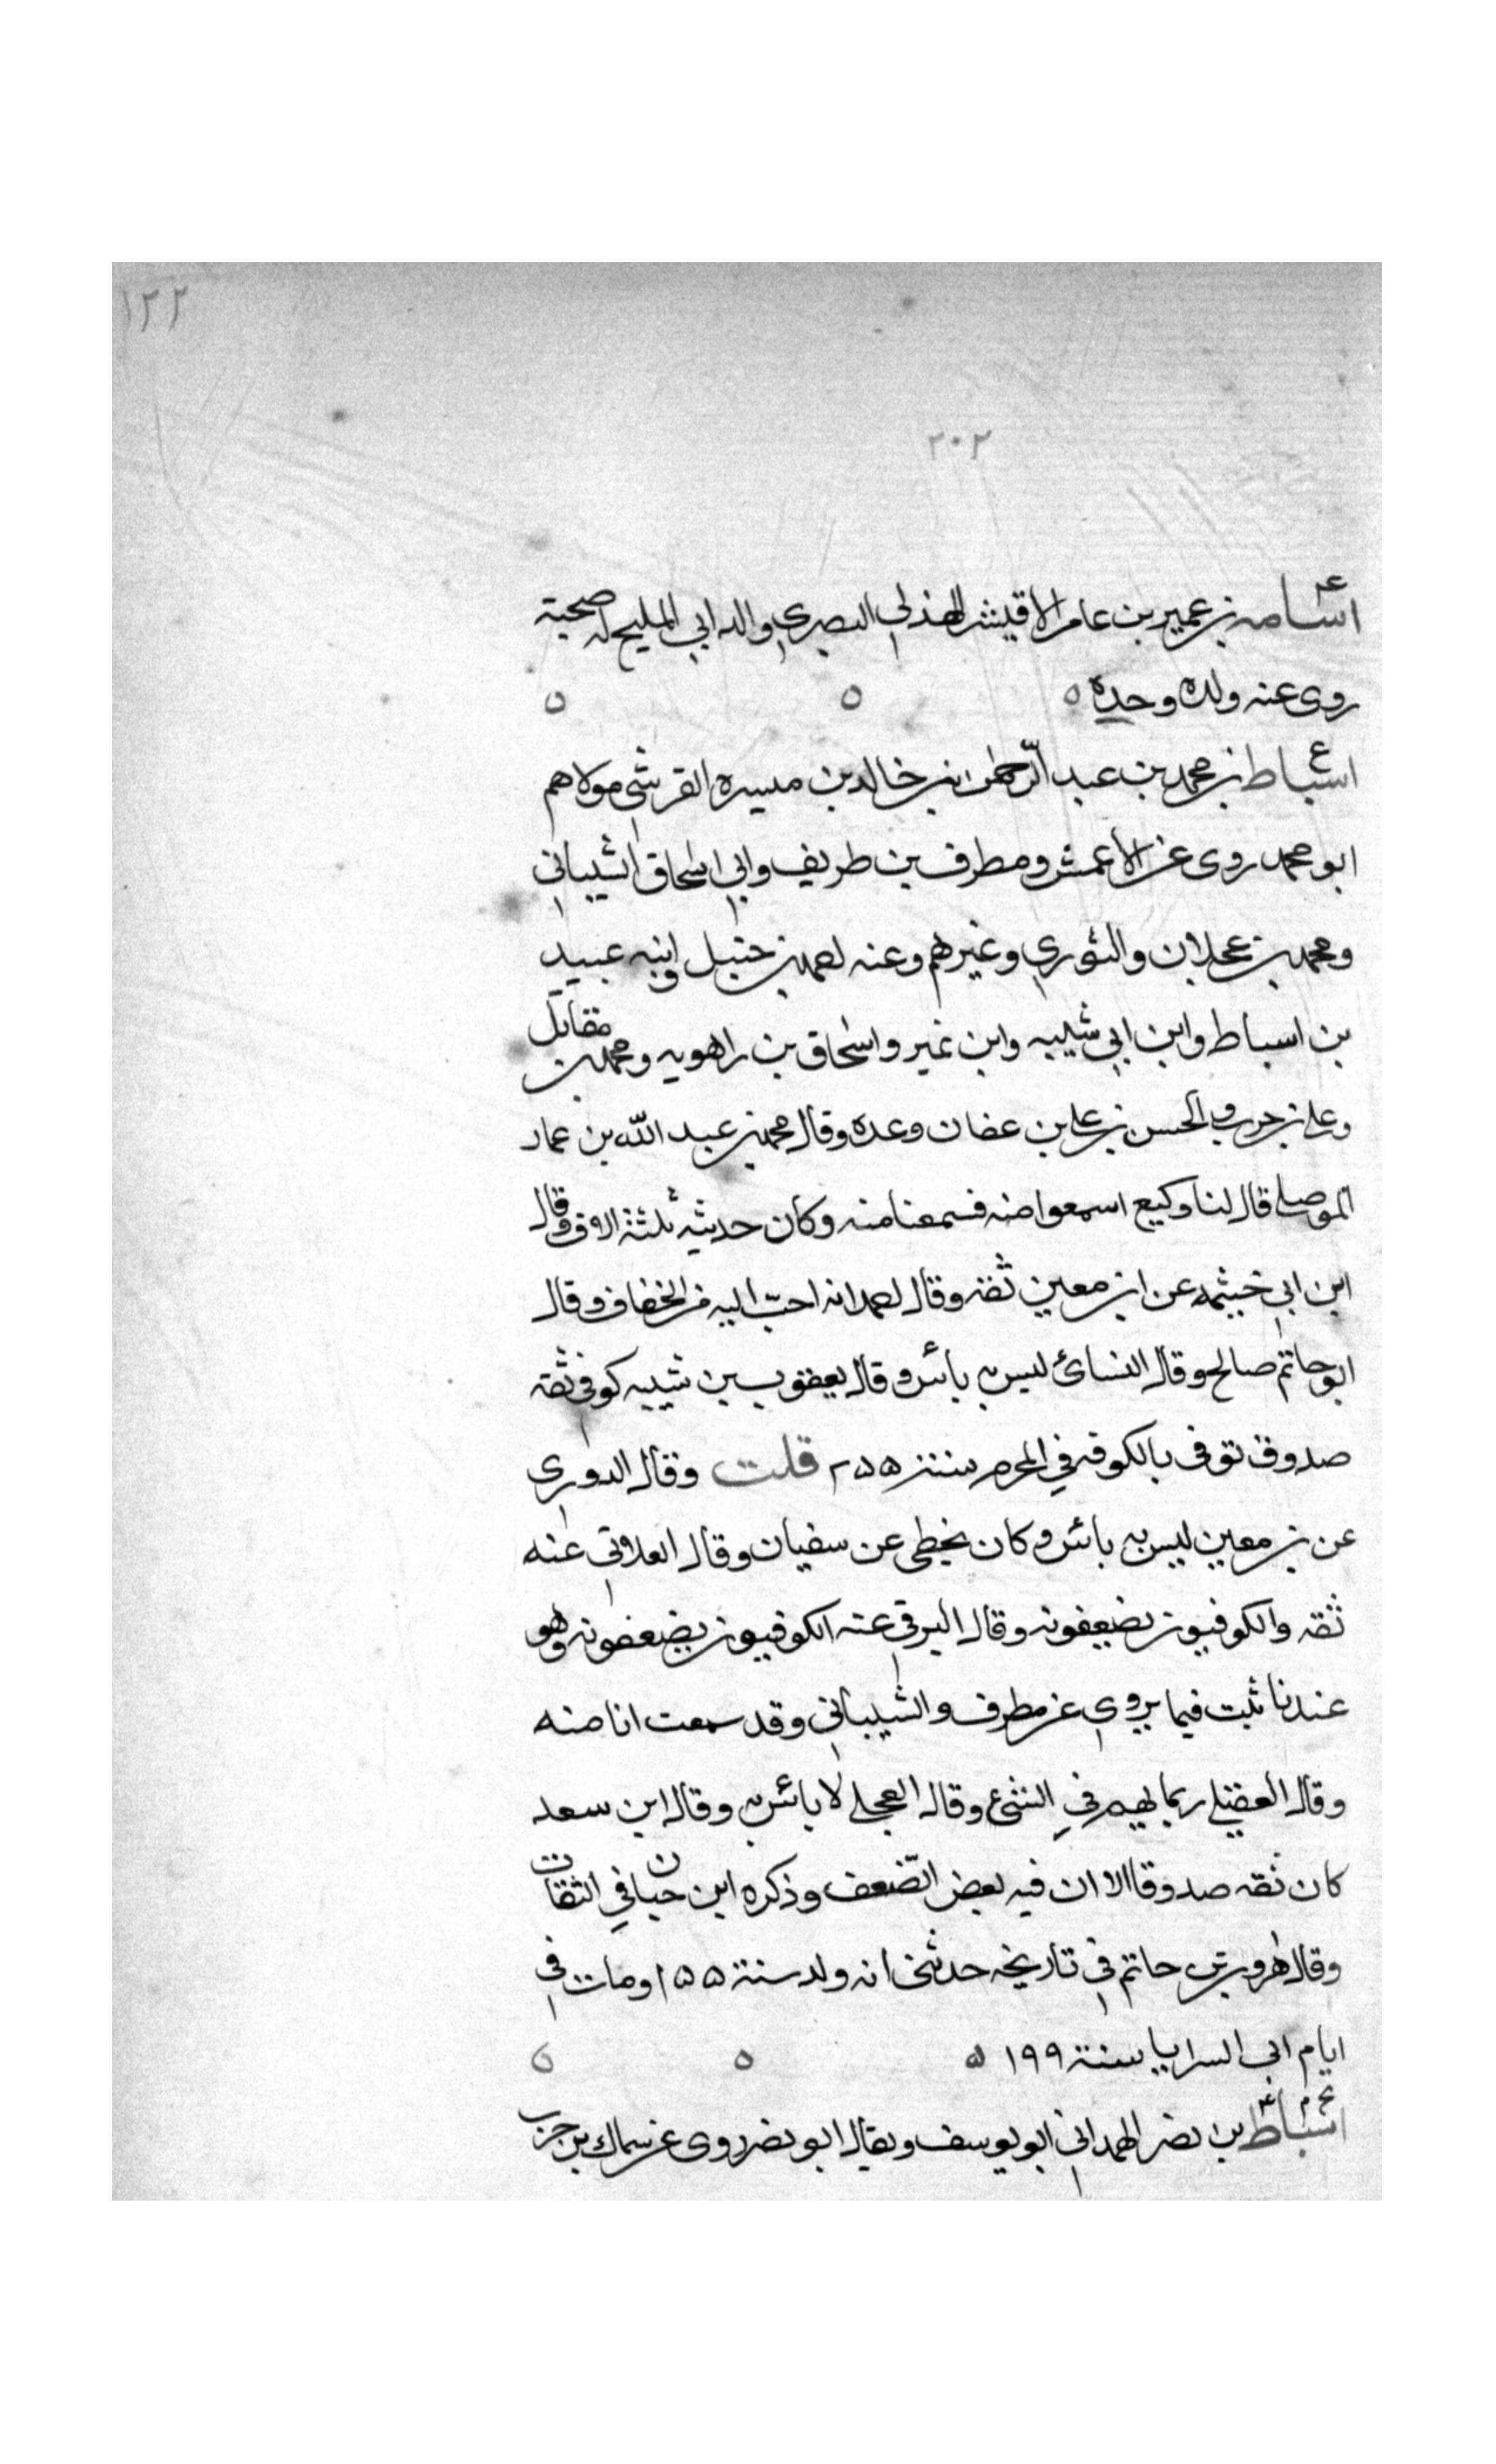 ١٢٢
٢٠٢
ع
اسامه بن عمير بن عامر الاقيشر الهذلي البصري والد ابي المليح له صحبة
روى عنه ولده وحده ٥ ٥ ٥
ع
اسباط بن محمد بن عبد الرّحمٰن بن خالد بن ميسره القرشي مولاهم
ابو محمد روى عن الاعمش ومطرف بن طريف وابي اسحاق الشيباني
ومحمد بن عجلان والثوري وغيرهم وعنه احمد بن حنبل وابنه عبيد
بن اسباط وابن ابي شيبه وابن نمير واسحاق بن راهويه ومحمد بن مقاتل
وعلي بن حرب والحسن بن علي بن عفان وعده وقال محمد بن عبد الله بن عمار
الموصلي قال لنا وكيع اسمعوا منه فسمعنا منه وكان حديثه ثلثة الاف وقال
ابن ابي خيثمه عن ابن معين ثقة وقال احمد انه احبّ اليه من الخفاف وقال
ابو حاتم صالح وقال النسائ ليس به بائس وقال يعقوب بن شيبه كوفي ثقة
صدوق توفى بالكوفه في المحرم سنة ٢٥٥ قلت وقال الدوري
عن بن معين ليس به بائس وكان يخطي عن سفيان وقال الغلابي عنه
ثقه والكوفيون يضعيفونه وقال البرقي عنه الكوفيون يضعفونه وهو
عندنا ثبت فيما يروي عن مطرف والشيباني وقد سمعت انا منه
وقال العقيلي ربما يهم في الشيء وقال العجلي لا بائس به وقال ابن سعد
كان ثقه صدوقا الا ان فيه بعض الضّعف وذكره ابن حبان في الثقات
وقال هرون بن حاتم في تاريخه حدثني انه ولد سنة ١٥٥ ومات في
ايام ابي السرايا سنة ١٩٩ ٥ ٥ ٥
اسباط بن نصر الهمداني ابو يوسف ويقال ابو نصر روى عن سماك بن حرب